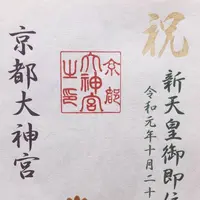 祝
新天皇御即位
令和元年十月二十
京都
大神宮
之印
京都大神宮